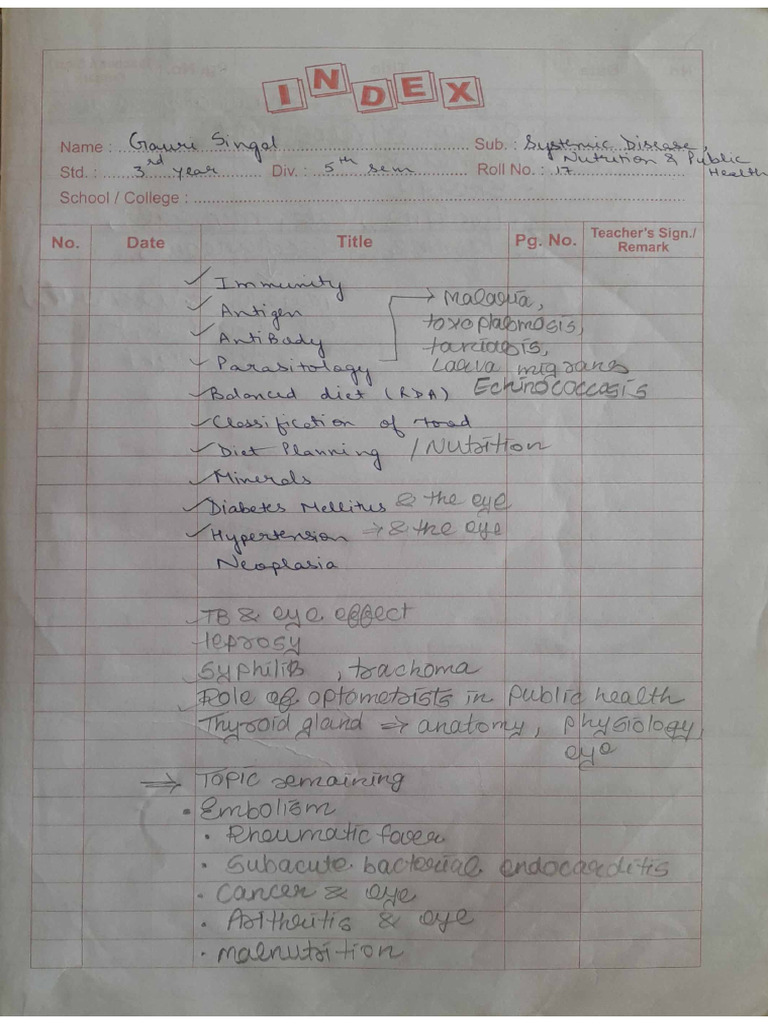 INDEX
Name : Gauri Singal Sub. : Systemic Disease, Nutrition & Public Health
Std. : 3rd year Div. : 5th sem Roll No. : 17
School / College :
No. Date Title Pg. No. Teacher's Sign./ Remark
✓ Immunity
✓ Antigen → Malaria,
✓ AntiBody toxoplasmosis,
✓ Parasitology taeniasis,
Larva migrans
✓ Balanced diet (RDA) Echinococcosis
✓ Classification of Food
✓ Diet Planning / Nutrition
✓ Minerals
✓ Diabetes Mellitus & the eye
✓ Hypertension → & the eye
Neoplasia
✓ TB & eye effect
leprosy
✓ Syphilis , trachoma
✓ Role of optometrists in public health
Thyroid gland ⇒ anatomy, physiology,
eye
⇒ Topic remaining
• Embolism
• Rheumatic fever
• Subacute bacterial endocarditis
• Cancer & eye
• Arthritis & eye
• malnutrition